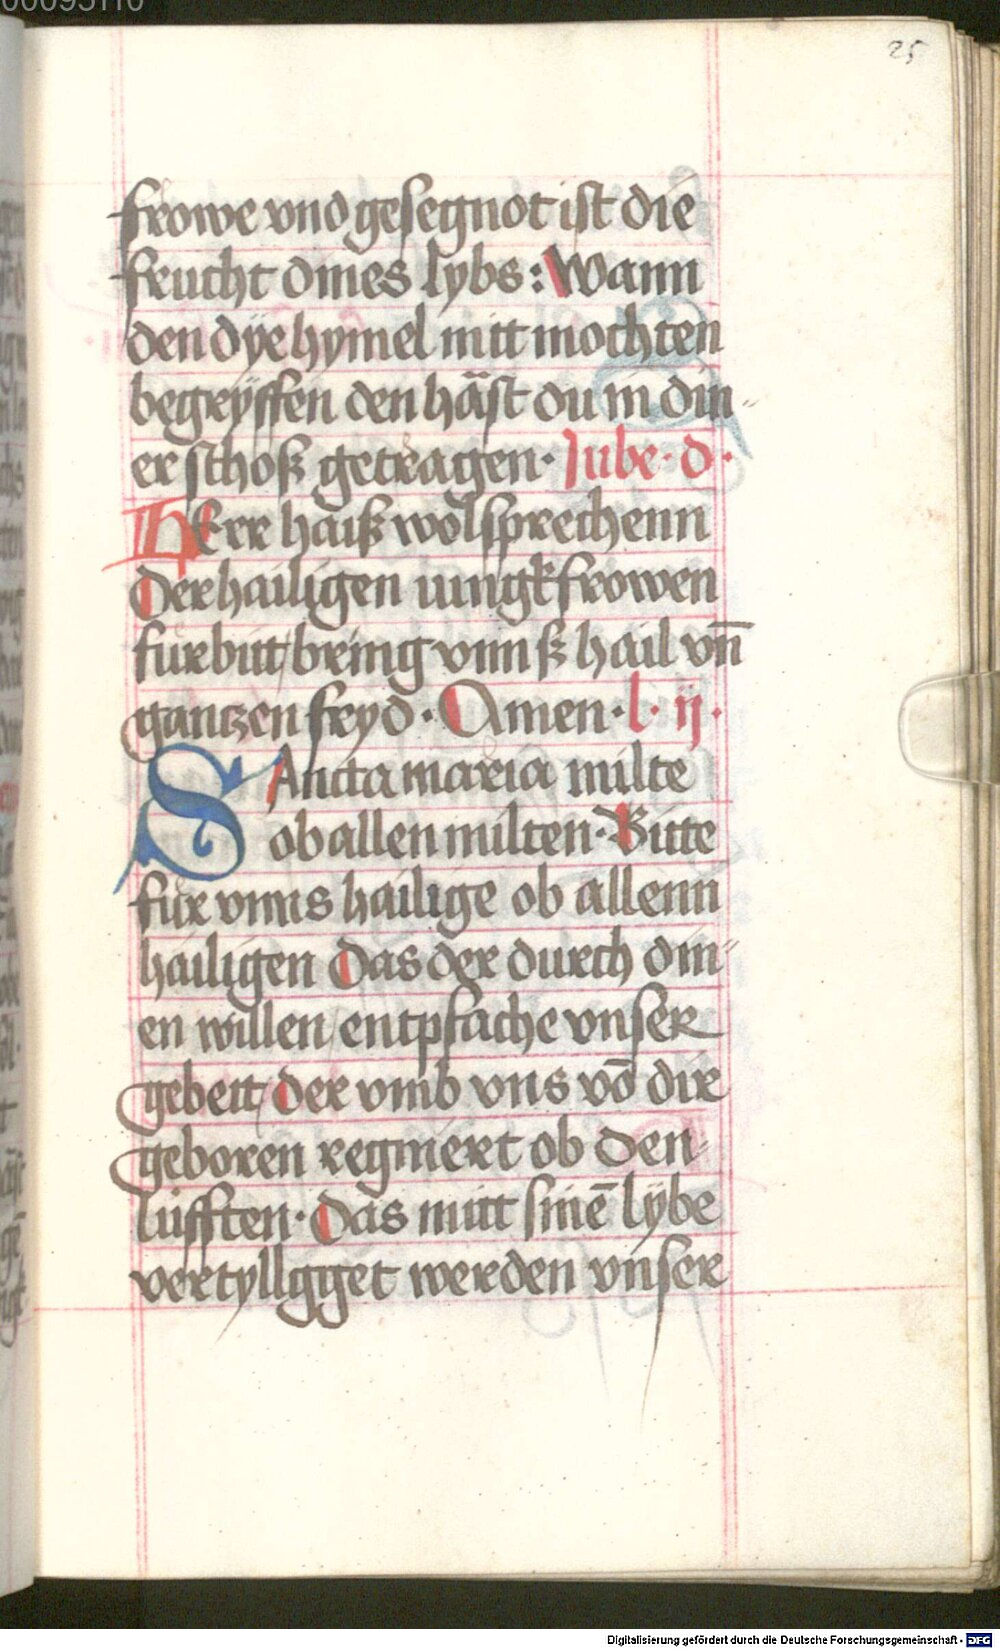 00095110
25
frowe vnd gesegnot ist die
frucht dines lybs : Wann
den dÿe hymel nitt mochten
begrÿffen den hāst du in din
er schoß getragen · Jube · d ·
HErr haiß wol sprechenn
Der hailigen iungkfrowen
fürbitt / bring vnnß hail vn̄
gantzen fryd · Amen · l · ij ·
SAncta maria milte
ob allen milten · Bitte
für vnns hailige ob allenn
hailigen Das der durch din
en willen / entpfache vnser
gebett / der vmb vns vō dir
geboren regniert ob den
lüfften · Das mitt sinē lÿbe
vertyllgget werden vnser
Digitalisierung gefördert durch die Deutsche Forschungsgemeinschaft - DFG